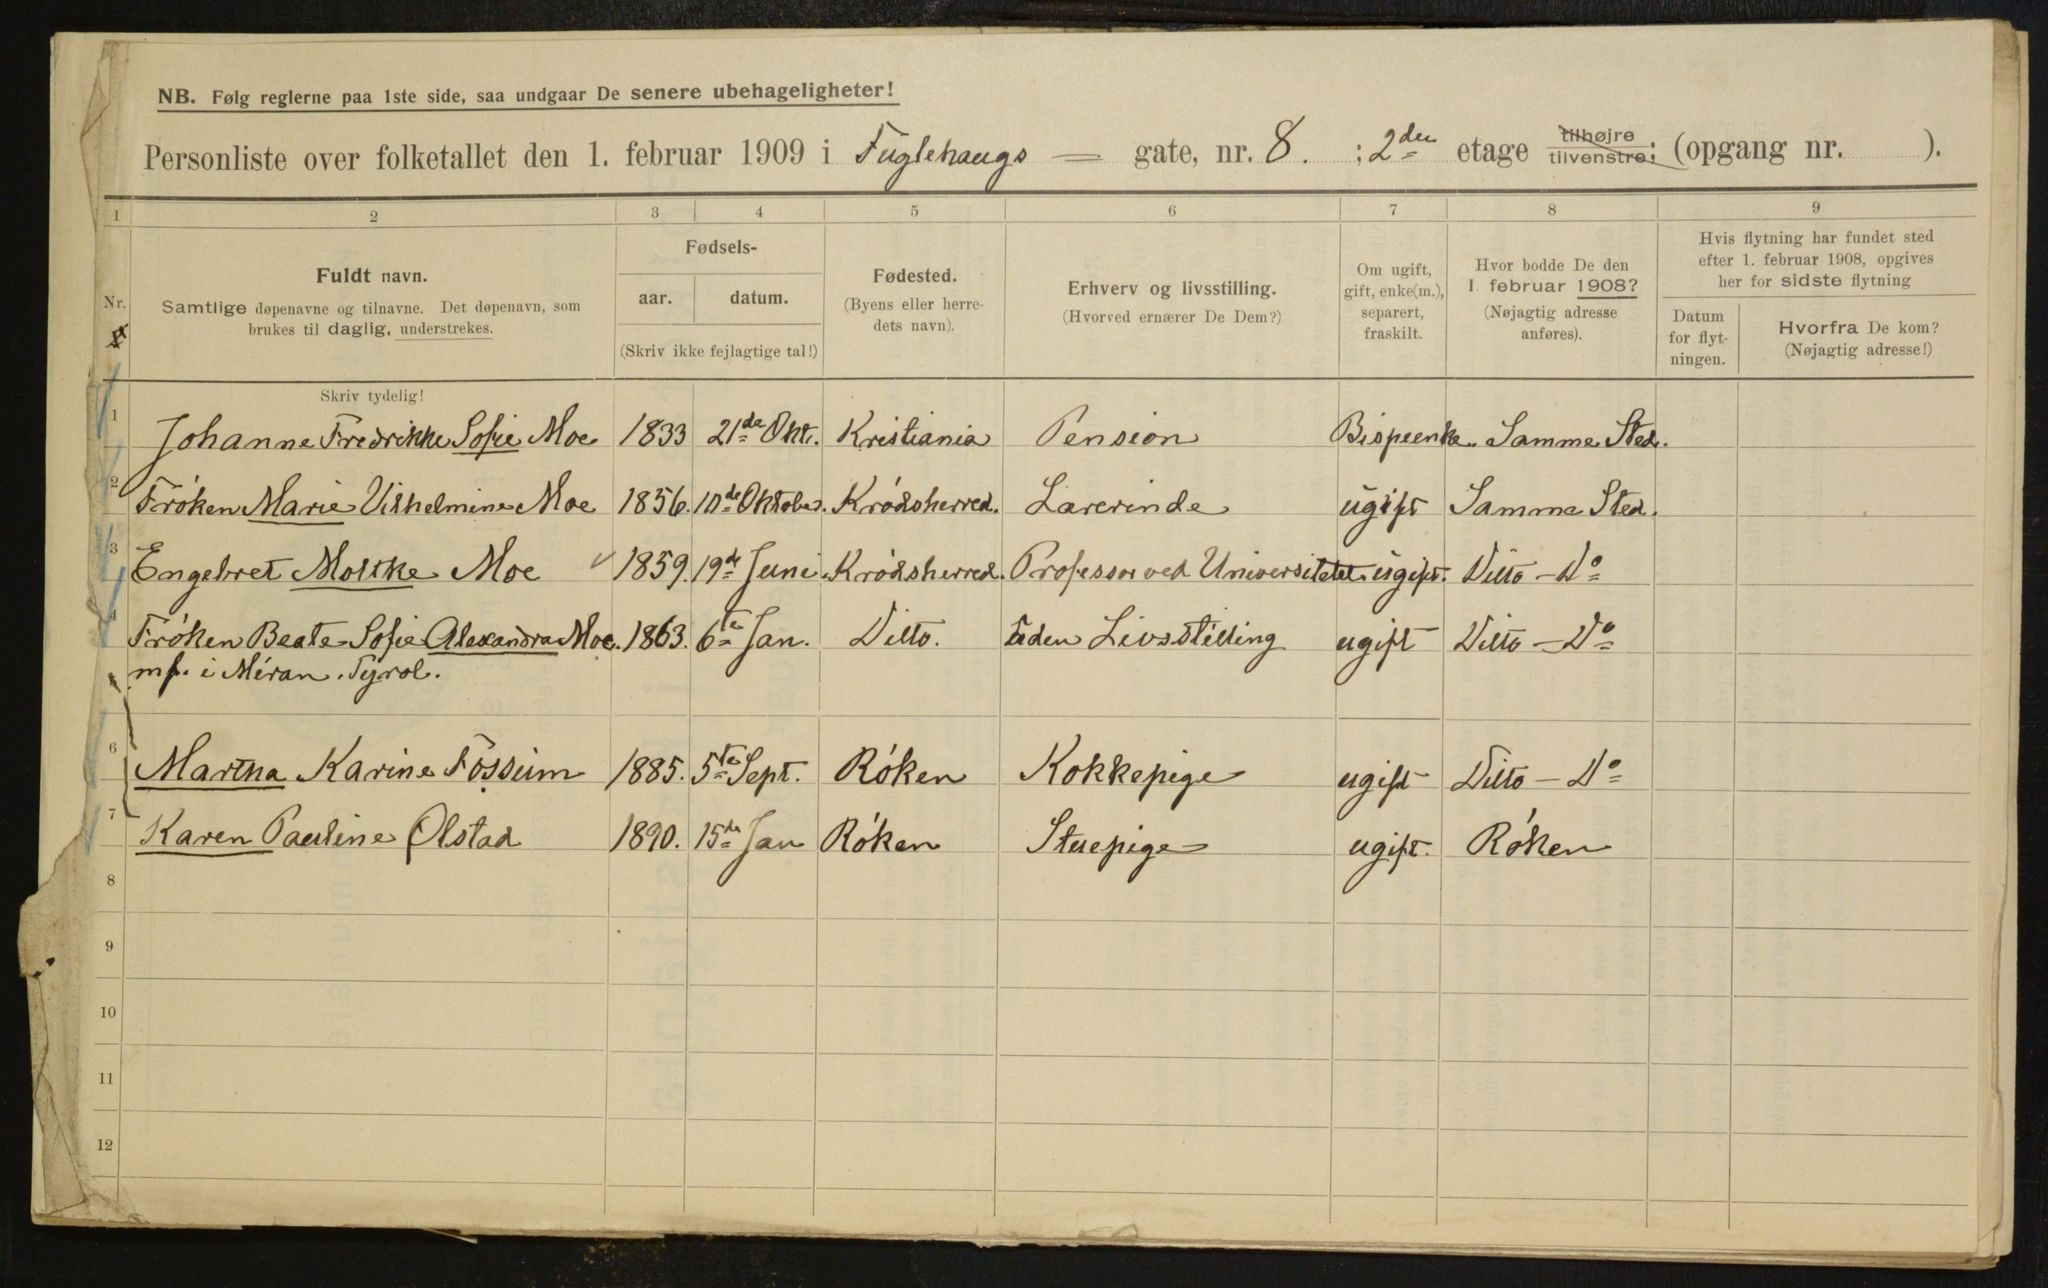 NB. Følg reglerne paa 1ste side, saa undgaar De senere ubehageligheter!
Personliste over folketallet den 1. februar 1909 i Fuglehaugs — gate, nr. 8. ; 2den etage tilhøjre tilvenstre; (opgang nr. ).
1 2 3 4 5 6 7 8 9
Nr.
Fuldt navn.
Samtlige døpenavne og tilnavne. Det døpenavn, som
brukes til daglig, understrekes.
Skriv tydelig!
Fødsels-
aar. datum.
(Skriv ikke fejlagtige tal!)
Fødested.
(Byens eller herre-
dets navn).
Erhverv og livsstilling.
(Hvorved ernærer De Dem?)
Om ugift,
gift, enke(m.),
separert,
fraskilt.
Hvor bodde De den
1 februar 1908?
(Nøjagtig adresse
anføres).
Hvis flytning har fundet sted
efter 1. februar 1908, opgives
her for sidste flytning
Datum
for flyt-
ningen.
Hvorfra De kom?
(Nøjagtig adresse!)
1 Johanne Fredrikke Sofie Moe 1833 21de Okt. Kristiania Pension Bispeenke. Samme Sted.
2 Frøken Marie Vilhelmine Moe 1856. 10de Oktober. Krødsherred. Lærerinde ugift Samme Sted.
3 Engebret Moltke Moe 1859. 19de Juni. Krødsherred. Professor ved Universitetet. ugift. Ditto – Do
4 Frøken Beate Sofie Alexandra Moe. 1863. 6te Jan. Ditto. uden Livsstilling ugift Ditto – Do
mf. i Méran. Tyrol.
6 Martha Karine Fossum 1885. 5te Sept. Røken Kokkepige ugift Ditto – Do
7 Karen Pauline Ølstad 1890. 15de Jan Røken Stuepige ugift. Røken
8
9
10
11
12